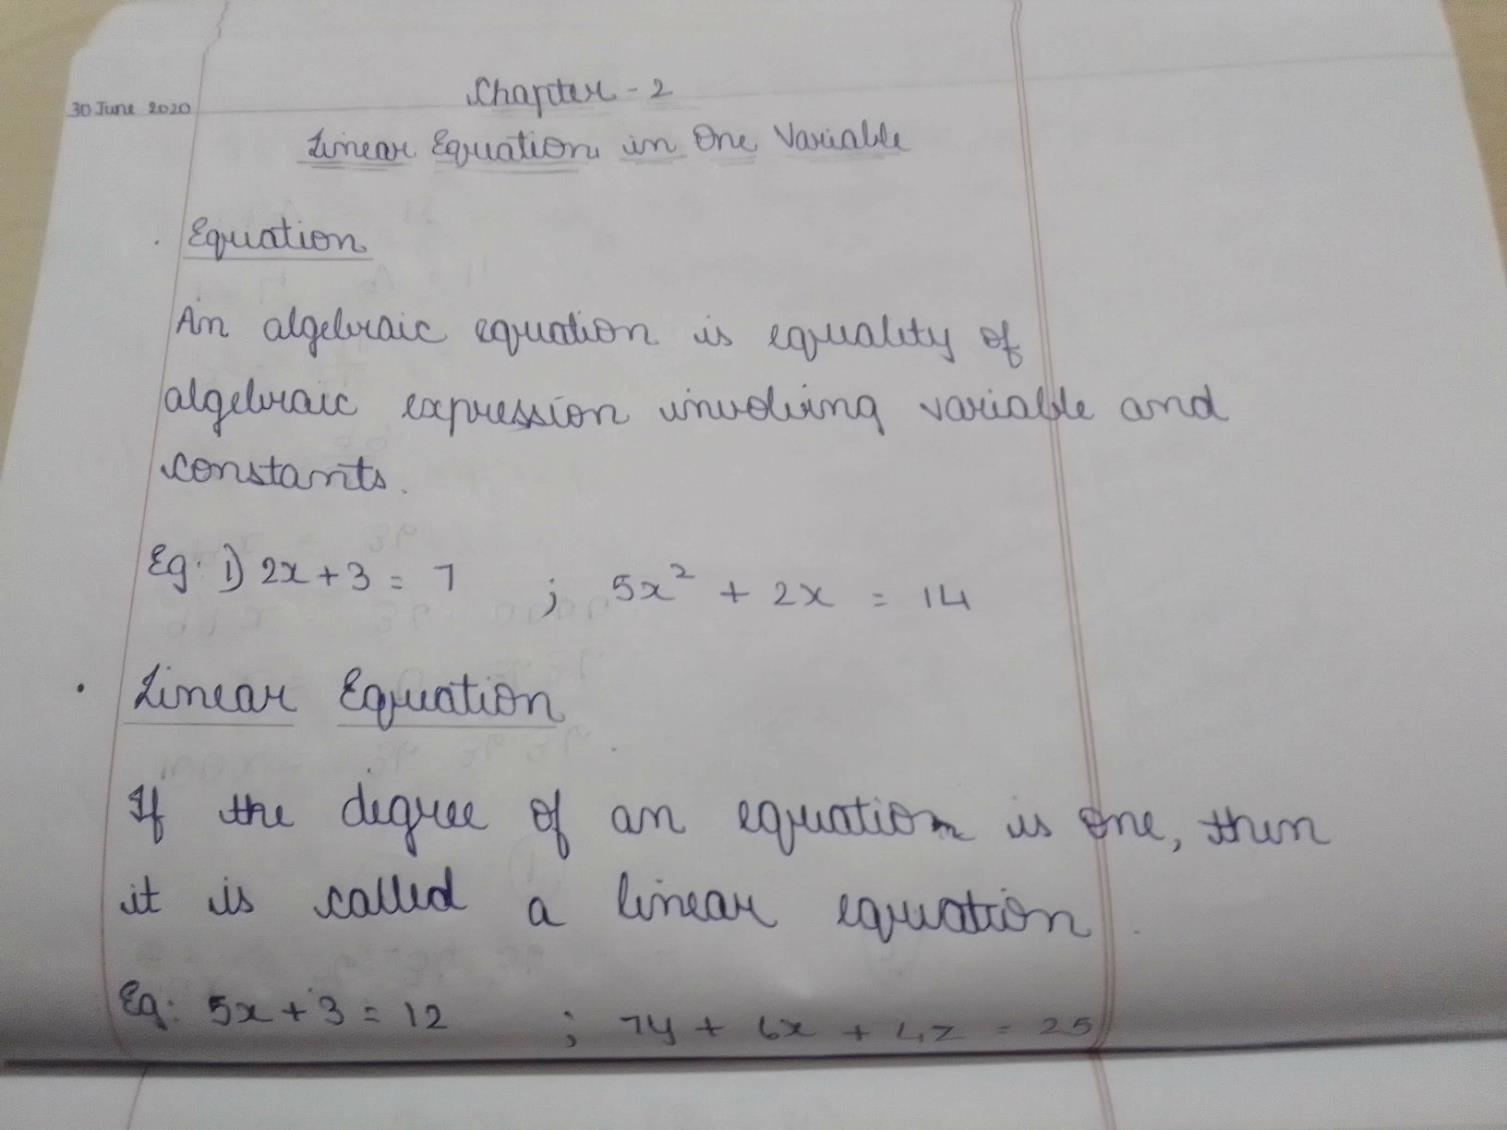 30 June 2020
Chapter - 2
Linear Equation in One Variable
. Equation
An algebraic equation is equality of
algebraic expression involving variable and
constants.
Eg: 1) 2x + 3 = 7 ; 5x² + 2x = 14
• Linear Equation
If the degree of an equation is one, then
it is called a linear equation.
Eg: 5x + 3 = 12 ; 7y + 6x + 4z = 25